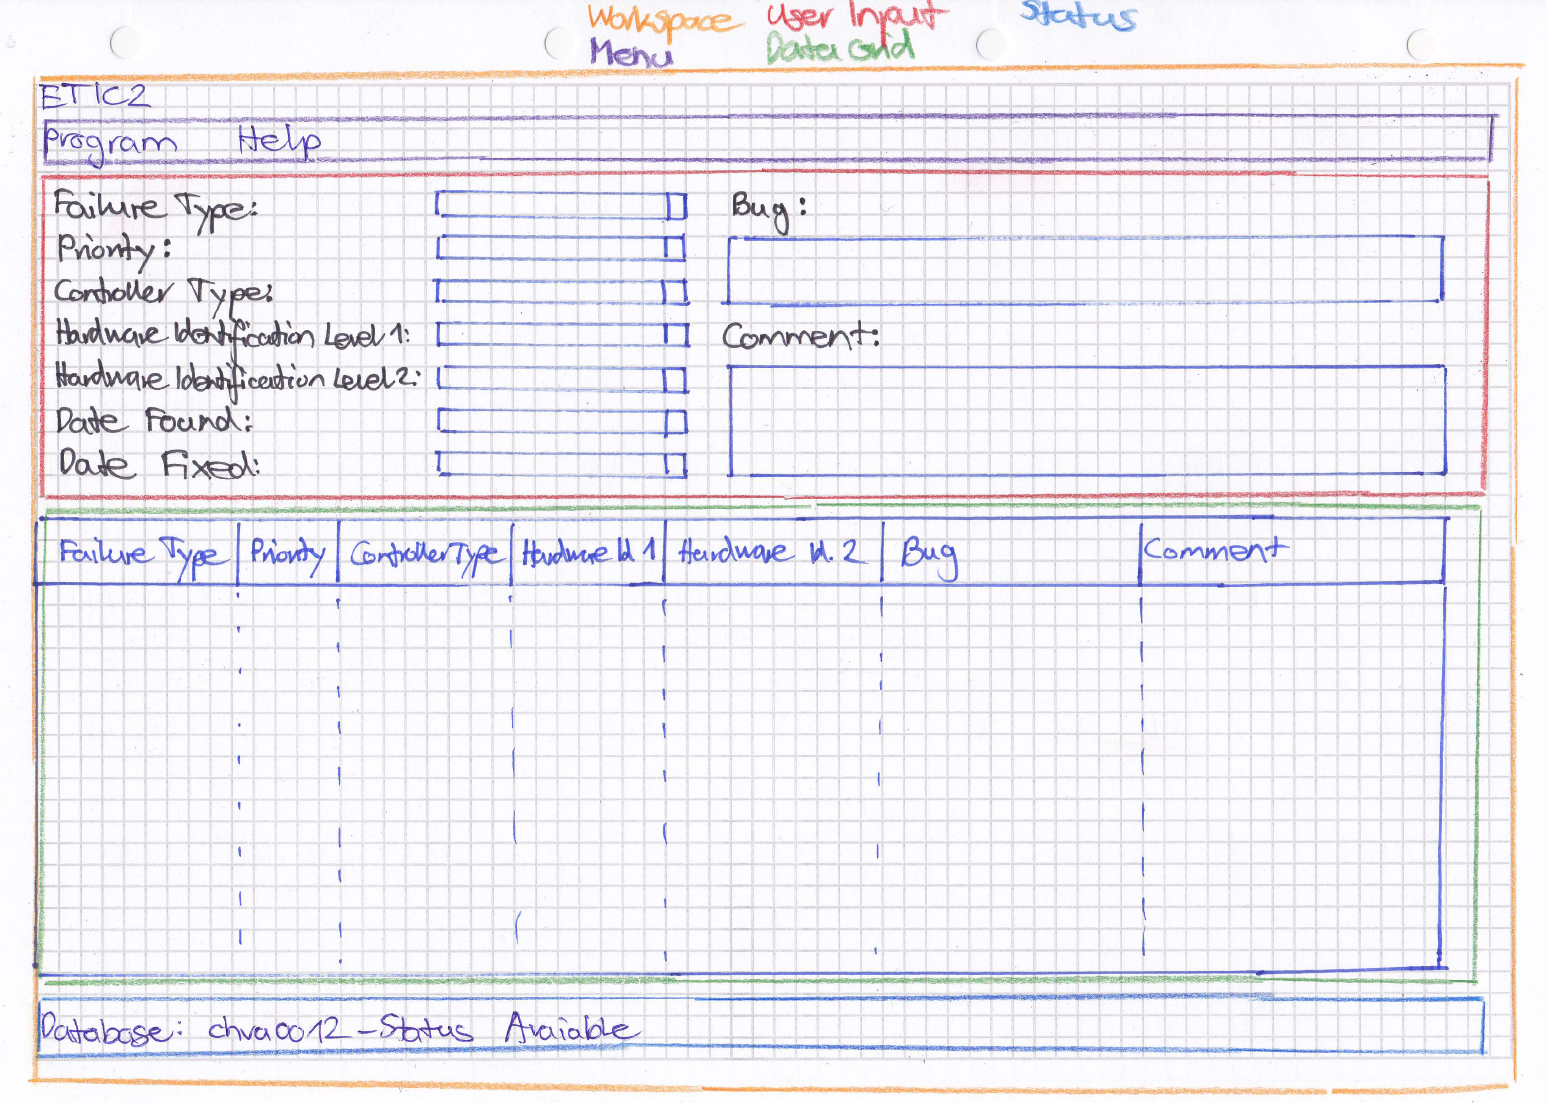 Workspace User Input Status
Menu Data Grid
ETIC2
Program Help
Failure Type:
Priority:
Controller Type:
Hardware Identification Level 1:
Hardware Identification Level 2:
Date Found:
Date Fixed:
Bug:
Comment:
Failure Type Priority Controller Type Hardware Id 1 Hardware Id. 2 Bug Comment
Database: chva0012 - Status Avaiable